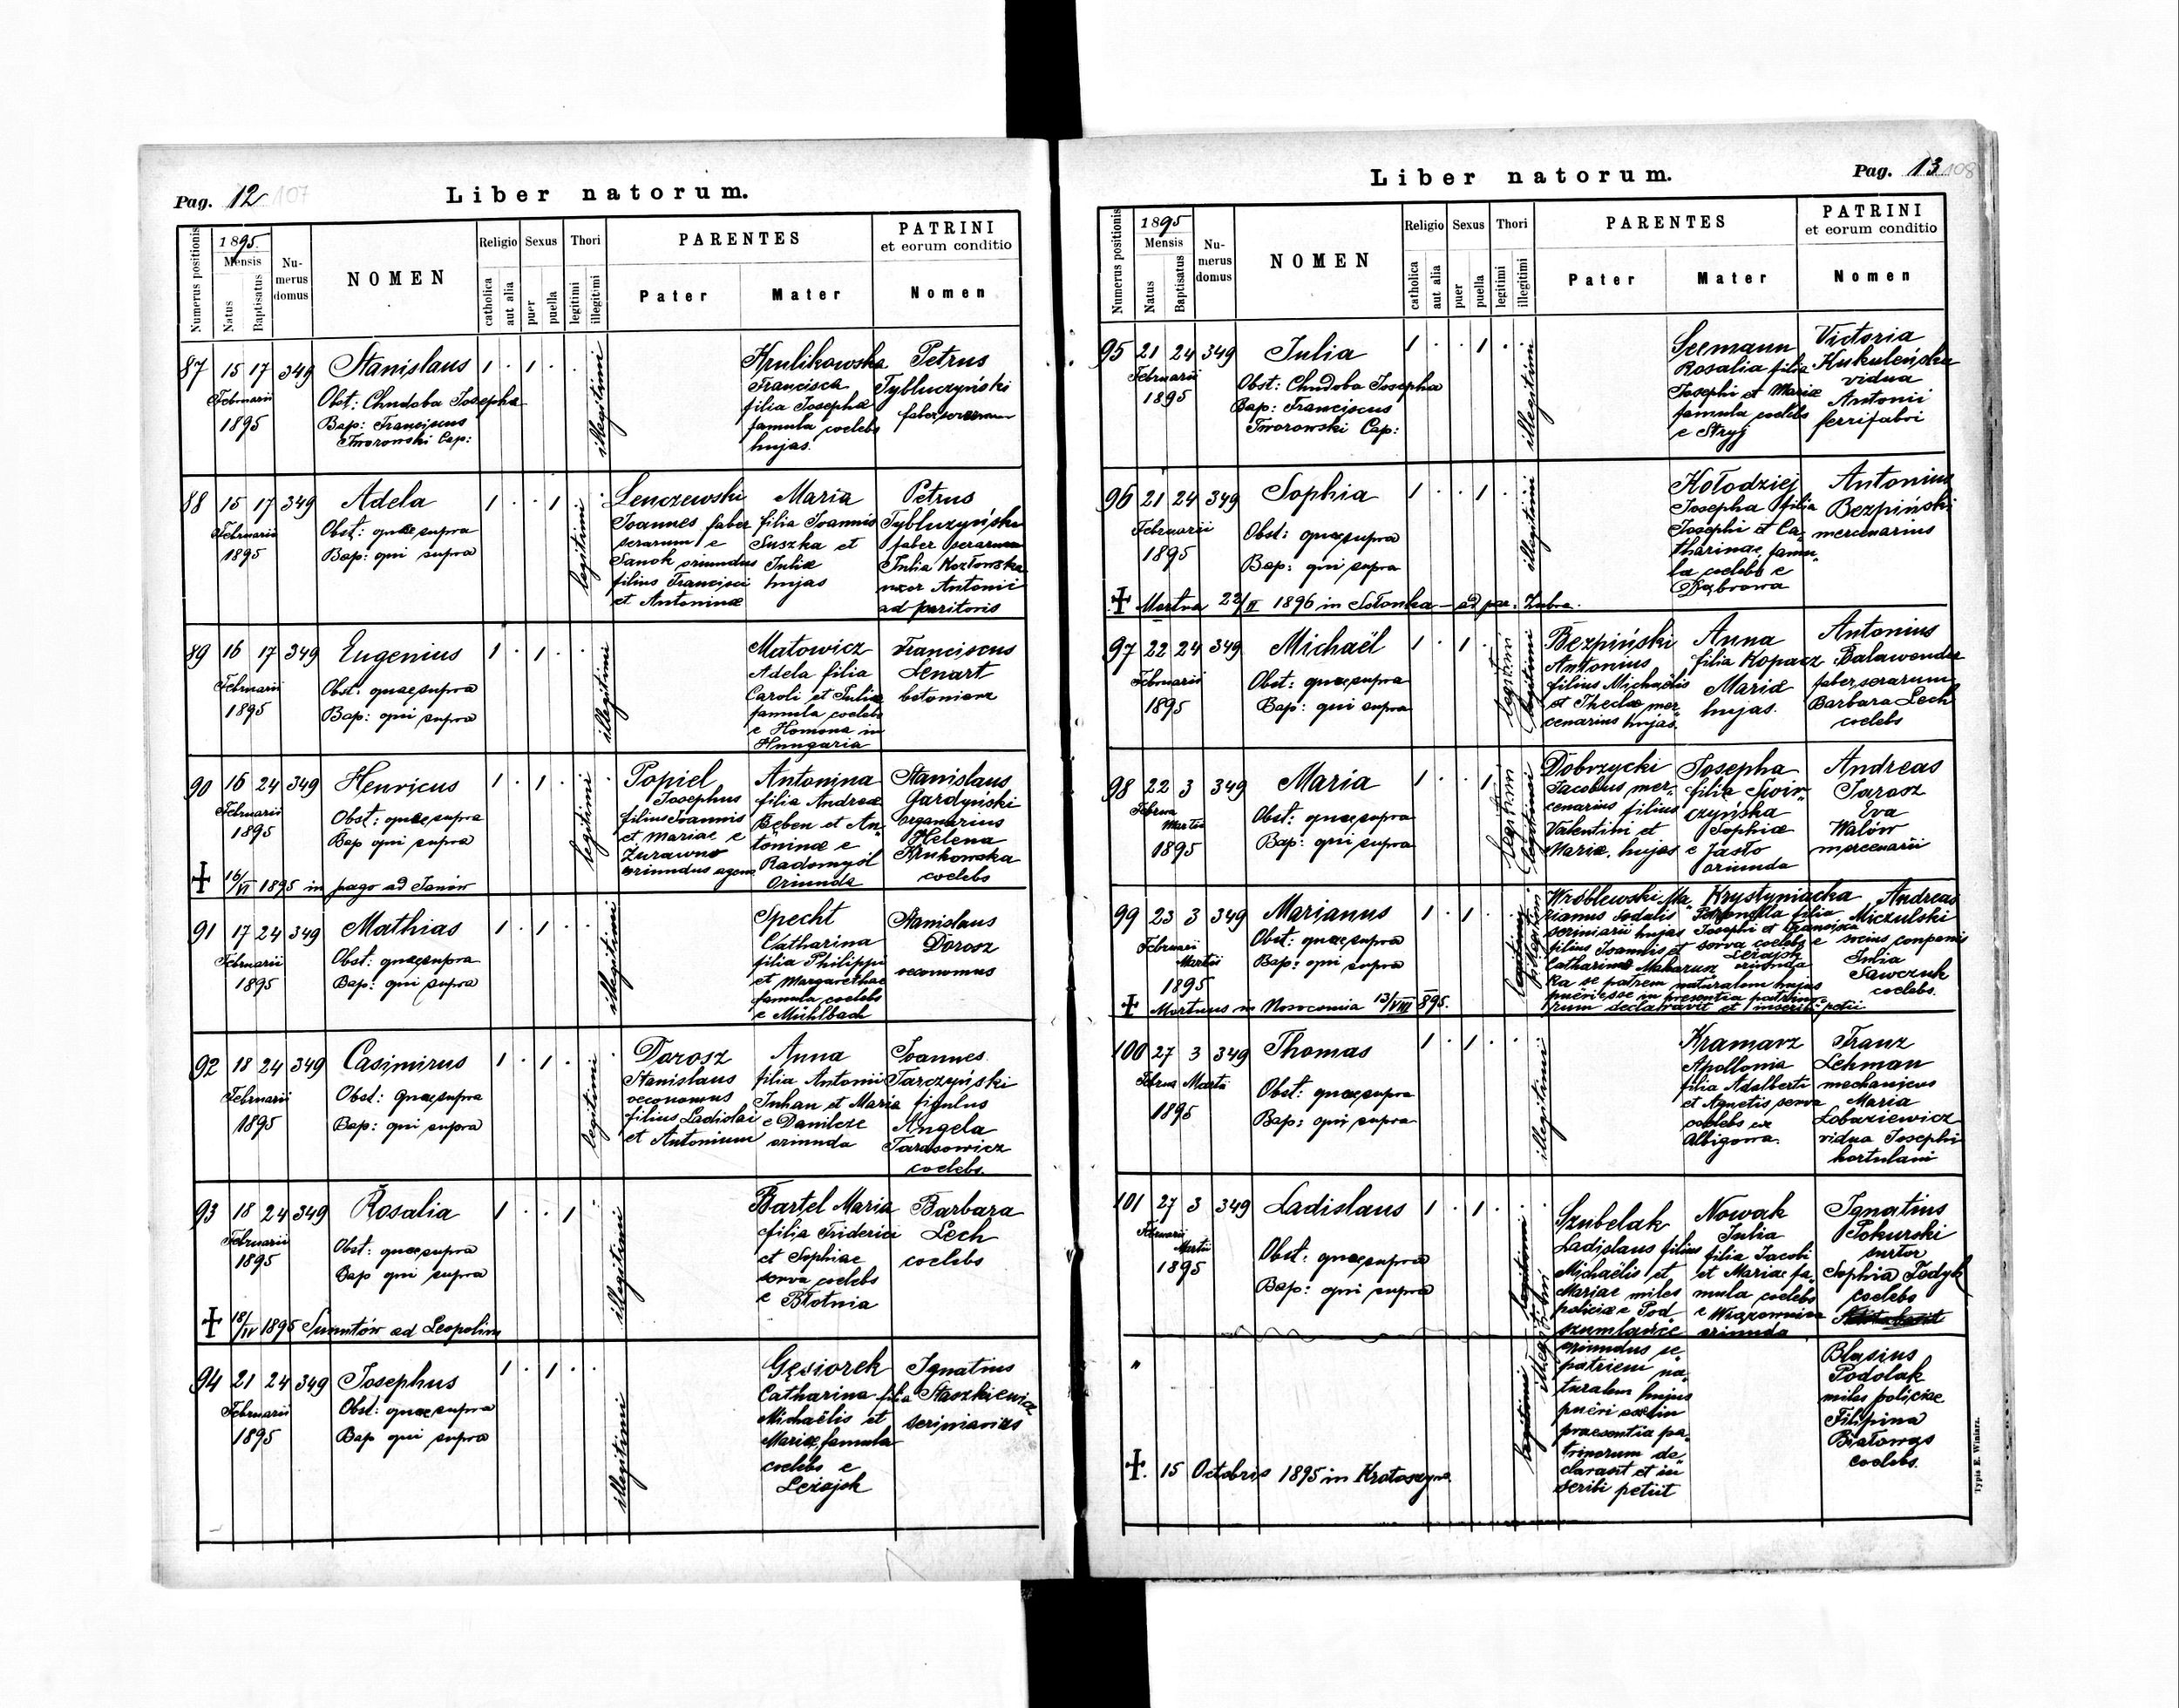 Pag. 12 107
Liber natorum.
Numerus positionis
1895.
Mensis
Natus
Baptisatus
Nu-
merus
domus
NOMEN
Religio
catholica
aut alia
Sexus
puer
puella
Thori
legitimi
illegitimi
PARENTES
Pater
Mater
PATRINI
et eorum conditio
Nomen
87 15 17 349 Stanislaus 1 . 1 . .
Februarii
1895
Obst: Chudoba Josepha
Bap: Franciscus
Tworowski Cap:
illegitimi
Krulikowska
Francisca
filia Josephæ
famula coelebs
hujas.
Petrus
Tybluczyński
faber serarum
88 15 17 349 Adela 1 . . 1 .
Februarii
1895
Obst: quae supra
Bap: qui supra
legitimi
Lenczewski
Joannes faber
serarum e
Sanok oriundus
filius Francisci
et Antoninæ
Maria
filia Joannis
Suszka et
Juliæ
hujas
Petrus
Tybluczyński
faber serarum
Julia Kozłowska
uxor Antonii
ad paritoris
89 16 17 349 Eugenius 1 . 1 . .
Februarii
1895
Obst: quae supra
Bap: qui supra
illegitimi
Matowicz
Adela filia
Caroli et Juliæ
famula coelebs
e Homona in
Hungaria
Franciscus
Lenart
betoniarz
90 16 24 349 Henricus 1 . 1 .
Februarii
1895
Obst: quae supra
Bap qui supra
✝ 16/VI 1895 in pago ad Janów
legitimi
Popiel
Josephus
filius Joannis
et Mariae e
Żurawno
oriundus agens
Antonina
filia Andreæ
Bęben et An-
toninæ e
Radomyśl
oriunda
Stanislaus
Gardyński
organarius
Helena
Krukowska
coelebs
91 17 24 349 Mathias 1 . 1 . .
Februarii
1895
Obst: quae supra
Bap: qui supra
illegitimi
Specht
Catharina
filia Philippi
et Margarethae
famula coelebs
e Mühlbach
Stanislaus
Dorosz
oeconomus
92 18 24 349 Casimirus 1 . 1 .
Februarii
1895
Obst: quae supra
Bap: qui supra
legitimi
Dorosz
Stanislaus
oeconomus
filius Ladislai
et Antonium
Anna
filia Antonii
Juhan et Maria
e Danilcze
oriunda
Joannes
Tarczyński
figulus
Angela
Tarasowicz
coelebs
93 18 24 349 Rosalia 1 . . 1 .
Februarii
1895
Obst: quae supra
Bap qui supra
✝ 18/IV 1895 ad Leopolim
illegitimi
Bartel Maria
filia Friderici
et Sophiae
serva coelebs
e Błotnia
Barbara
Lech
coelebs
94 21 24 349 Josephus 1 . 1 . .
Februarii
1895
Obst: quae supra
Bap qui supra
illegitimi
Gęsiorek
Catharina filia
Michaëlis et
Mariæ famula
coelebs e
Leżajsk
Ignatius
Staszkiewicz
seriniarius
Pag. 13 108
Liber natorum.
Numerus positionis
1895
Mensis
Natus
Baptisatus
Nu-
merus
domus
NOMEN
Religio
catholica
aut alia
Sexus
puer
puella
Thori
legitimi
illegitimi
PARENTES
Pater
Mater
PATRINI
et eorum conditio
Nomen
95 21 24 349 Julia 1 . . 1 .
Februarii
1895
Obst: Chudoba Josepha
Bap: Franciscus
Tworowski Cap:
illegitimi
Seemann
Rosalia filia
Josephi et Mariæ
famula coelebs
e Stryj
Victoria
Kukuleńska
vidua
Antonii
ferrifabri
96 21 24 349 Sophia 1 . . 1 .
Februarii
1895
Obst: quae supra
Bap: qui supra
✝ Mortua 22/II 1896 in Sołonka - ad par. Zubra.
illegitimi
Kołodziej
Josepha filia
Josephi et Ca-
tharinae, famu-
la coelebs e
Dąbrowa
Antonius
Bezpiński
mercenarius
97 22 24 349 Michaël 1 . 1 .
Februarii
1895
Obst: quae supra
Bap: qui supra
legitimi
(legitimi
Bezpiński
Antonius
filius Michaëlis
et Theclæ mer-
cenarius hujas.
Anna
filia Kopacz
Mariæ
hujas.
Antonius
Balawender
faber serarum
Barbara Lech
coelebs
98 22 3 349 Maria 1 . . 1
Februa
Martii
1895
Obst: quae supra
Bap: qui supra
legitimi
(legitimi
Dobrzycki
Jacobus mer-
cenarius filius
Valentini et
Mariæ, hujas
Josepha
filia Świr-
czyńska
Sophiæ
e Jasło
oriunda
Andreas
Jarosz
Eva
Walów
mercenarii
99 23 3 349 Marianus 1 . 1 . .
Februarii
Martii
1895
Obst: quae supra
Bap: qui supra
✝ Mortuus in Nosocomio 13/VIII 895.
legitimi
illegitimi
Wróblewski Ma-
rianus Sodalis
seriniarii hujas
filius Joannis et
Catharinæ Maharusz
ka se patrem naturalem hujus
pueri esse in presentia patrino-
rum declaravit et inscribi petii
Krystyniacka
Petronella filia
Josephi et Francisca
serva coelebs e
Leżajsk
oriunda
Andreas
Miczulski
socius
Julia
Sawczuk
coelebs.
100 27 3 349 Thomas 1 . 1 . .
Februa Martii
1895
Obst: quae supra
Bap: qui supra
illegitimi
Kramarz
Apollonia
filia Adalberti
et Agnetis serva
coelebs ex
Albigowa
Franz
Lehman
mechanicus
Maria
Łobaziewicz
vidua Josephi
hortulani
101 27 3 349 Ladislaus 1 . 1 . .
Februarii
Martii
1895
Obst: quae supra
Bap: qui supra
legitimi
illegitimi
Szubelak
Ladislaus filius
Michaëlis et
Mariae miles
policiæ e Pod
szumlańce
oriundus se
patrem na-
turalem hujus
pueri esse in
praesentia pa-
trinorum de-
claravit et in
scribi petiit
Nowak
Julia
filia Jacobi
et Mariae fa-
mula coelebs
e
oriunda
Ignatius
Pokurski
sartor
Sophia Fedyk
coelebs
"
legitimi
Blasius
Podolak
miles policiae
Filipina
Białowąs
coelebs.
✝. 15 Octobris 1895 in Krotoszyn.
Typis E. Winiarz.